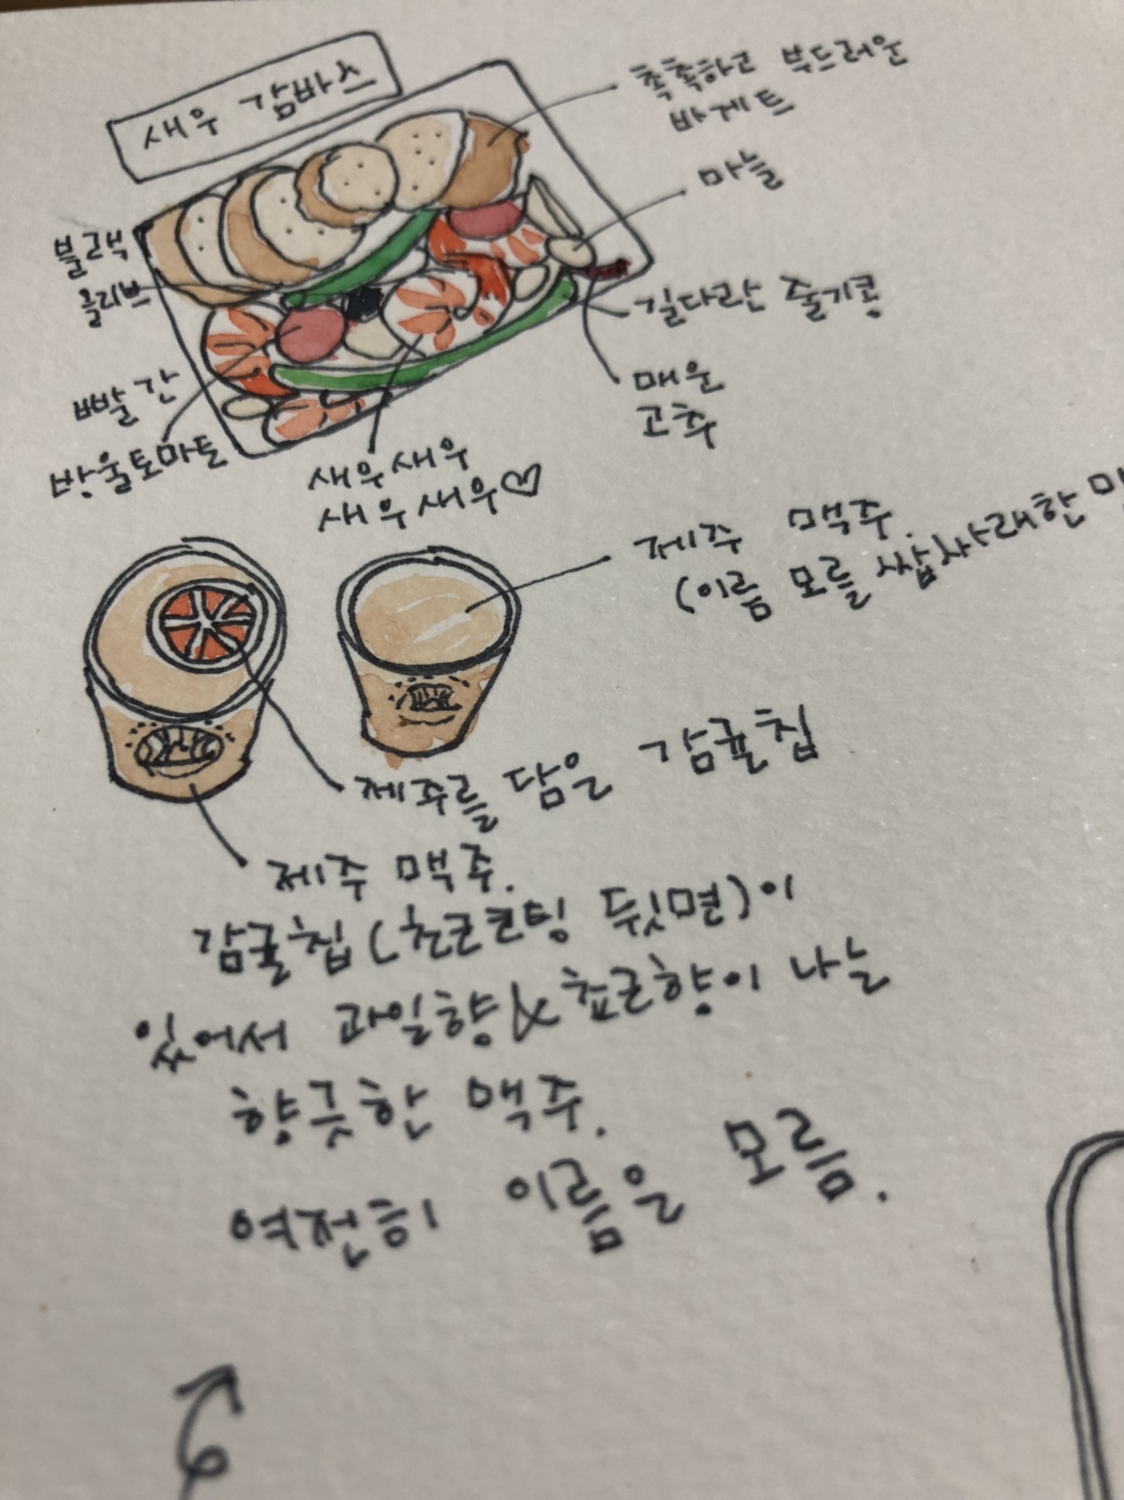 새우 감바스
촉촉하고 부드러운
바게트
마늘
블랙
올리브
길다란 줄기콩
매운
고추
빨간
방울토마토
새우새우
새우새우♡
제주 맥주.
(이름 모를 쌉싸래한
제주를 담은 감귤칩
제주 맥주.
감귤칩(초코코팅 뒷면)이
있어서 과일향&초코향이 나는
향긋한 맥주.
여전히 이름은 모름.